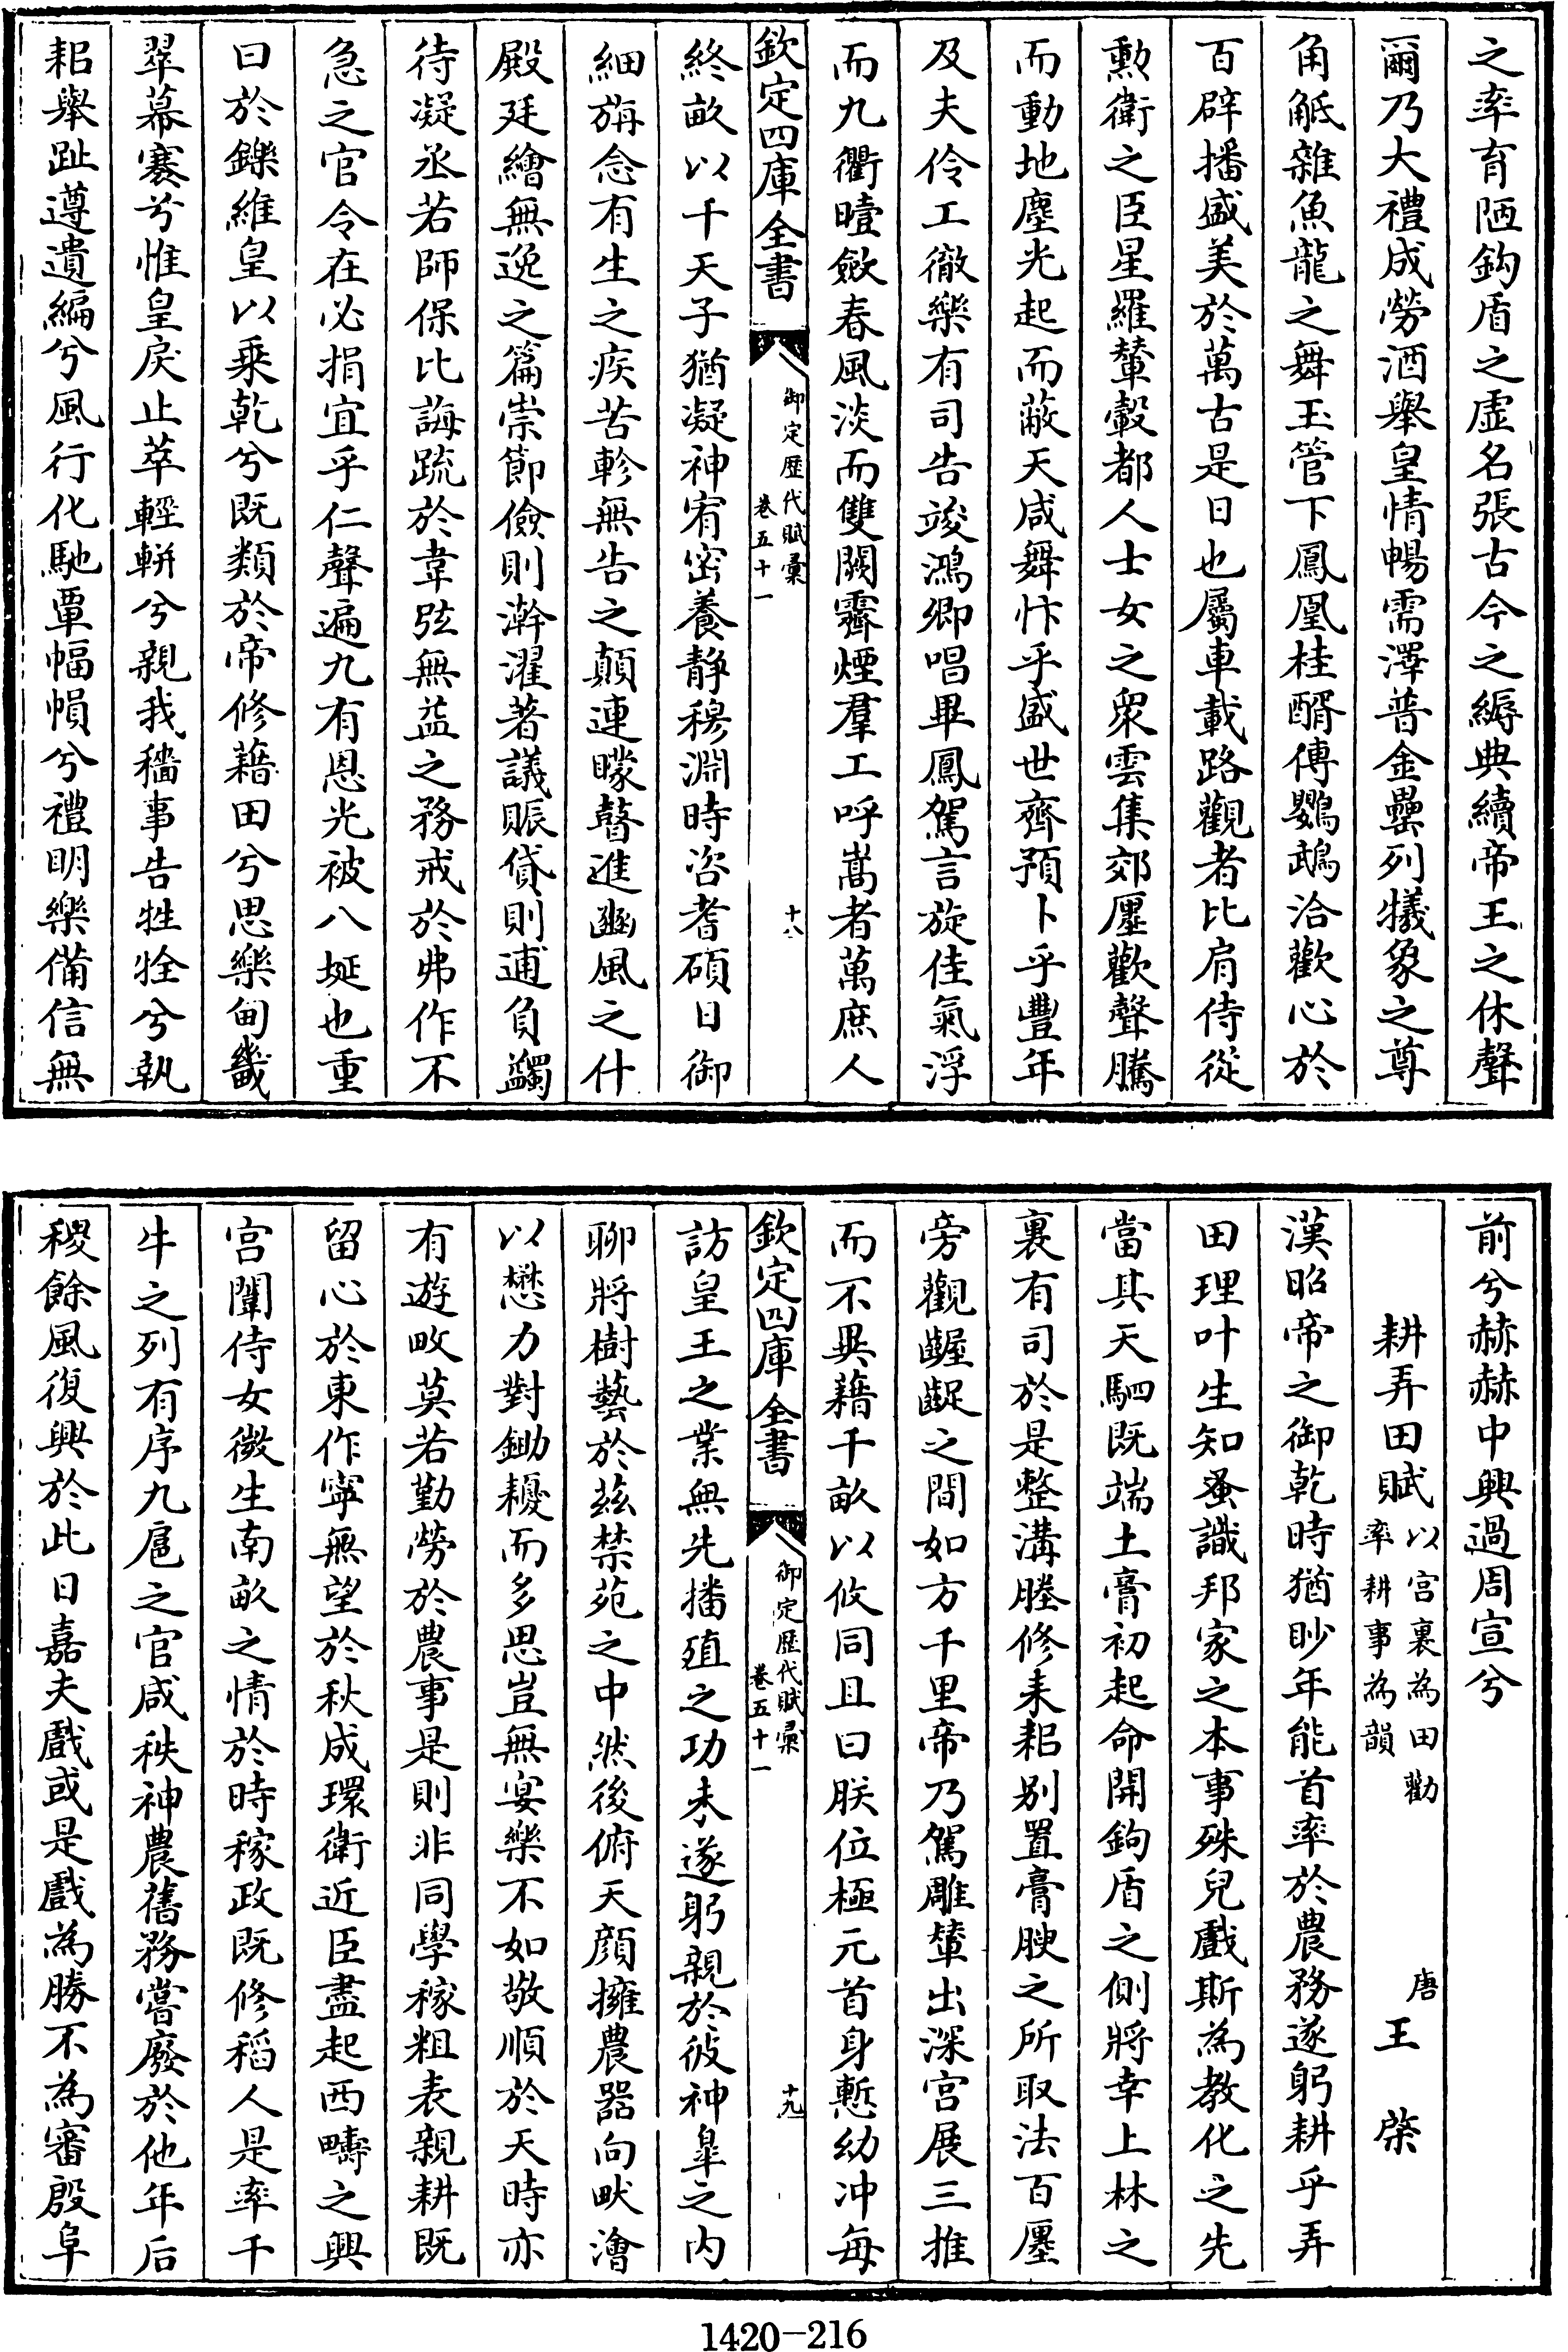 之率育陋鈎盾之虛名張古今之縟典續帝王之休聲
爾乃大禮成勞酒舉皇情暢需澤普金罍列犧象之尊
角觝雜魚龍之舞玉管下鳳凰桂醑傳鸚鵡洽歡心於
百辟播盛美於萬古是日也屬車載路觀者比肩侍從
勲衛之臣星羅輦轂都人士女之衆雲集郊廛歡聲騰
而動地塵光起而蔽天咸舞忭乎盛世齊預卜乎豐年
及夫伶工徹樂有司告竣鴻卿唱畢鳳駕言旋佳氣浮
而九衢曀斂春風淡而雙闕霽煙羣工呼嵩者萬庶人
欽定四庫全書
御定歴代賦彙
卷五十一
十八
終畝以千天子猶凝神宥密養静穆淵時咨耆碩日御
細旃念有生之疾苦軫無告之顛連矇瞽進豳風之什
殿廷繪無逸之篇崇節儉則澣濯著議賑貸則逋負蠲
待凝丞若師保比誨疏於韋弦無益之務戒於弗作不
急之官令在必捐宜乎仁聲遍九有恩光被八埏也重
曰於鑠維皇以乗乾兮既類於帝修藉田兮思樂甸畿
翠幕褰兮惟皇戾止萃輕軿兮親我穡事告牲牷兮執
耜舉趾遵遺編兮風行化馳覃幅幀兮禮明樂備信無
前兮赫赫中興過周宣兮
耕弄田賦
以宫裏為田勸
率耕事為韻
唐
王棨
漢昭帝之御乾時猶眇年能首率於農務遂躬耕乎弄
田理叶生知蚤識邦家之本事殊兒戲斯為教化之先
當其天駟既端土膏初起命開鉤盾之側將幸上林之
裏有司於是整溝塍修耒耜别置膏腴之所取法百廛
旁觀齷齪之間如方千里帝乃駕雕輦出深宫展三推
而不異藉千畝以攸同且曰朕位極元首身慙幼冲每
欽定四庫全書
御定歴代賦彙
卷五十一
十九
訪皇王之業無先播殖之功未遂躬親於彼神臯之内
聊將樹藝於兹禁苑之中然後俯天顔擁農器向畎澮
以懋力對鋤耰而多思豈無宴樂不如敬順於天時亦
有遊畋莫若勤勞於農事是則非同學稼粗表親耕既
留心於東作寧無望於秋成環衛近臣盡起西疇之興
宫闈侍女微生南畝之情於時稼政既修稻人是率千
牛之列有序九扈之官咸秩神農舊務嘗廢於他年后
稷餘風復興於此日嘉夫戲或是戲為勝不為審殷阜
1420-216